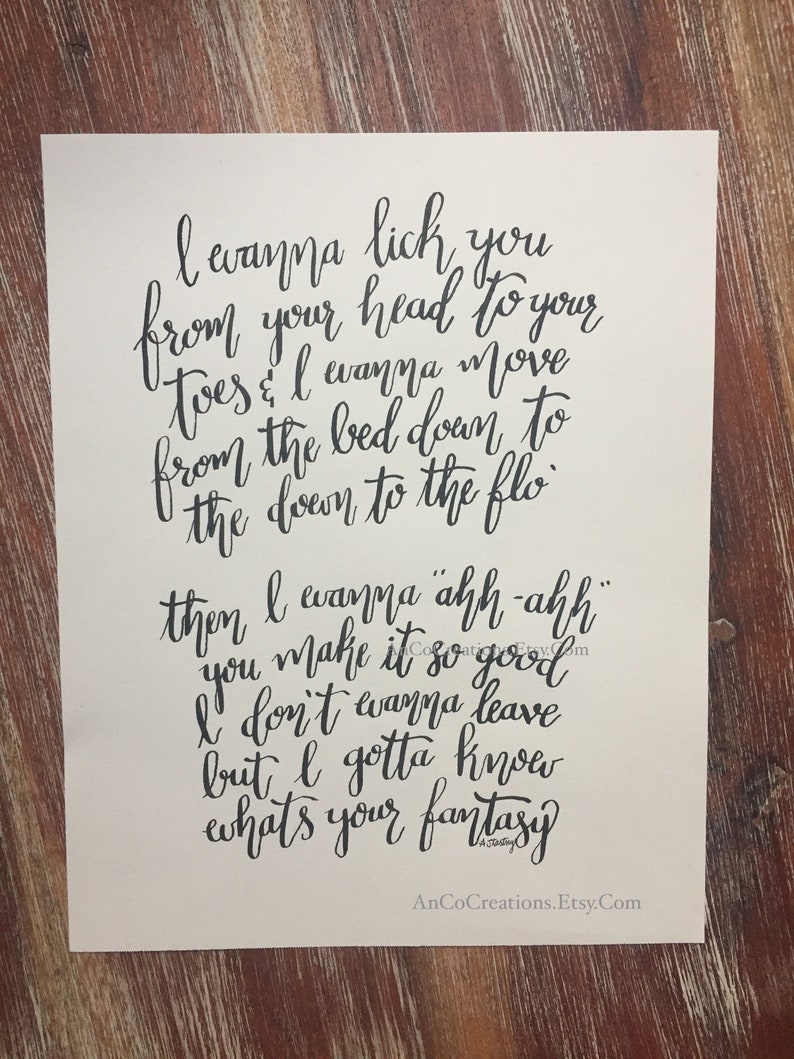 I wanna lick you
from your head to your
toes & I wanna move
from the bed down to
the down to the flo'
then I wanna "ahh-ahh"
AnCoCreations.Etsy.Com
you make it so good
I don't wanna leave
but I gotta know
whats your fantasy
AnCoCreations.Etsy.Com